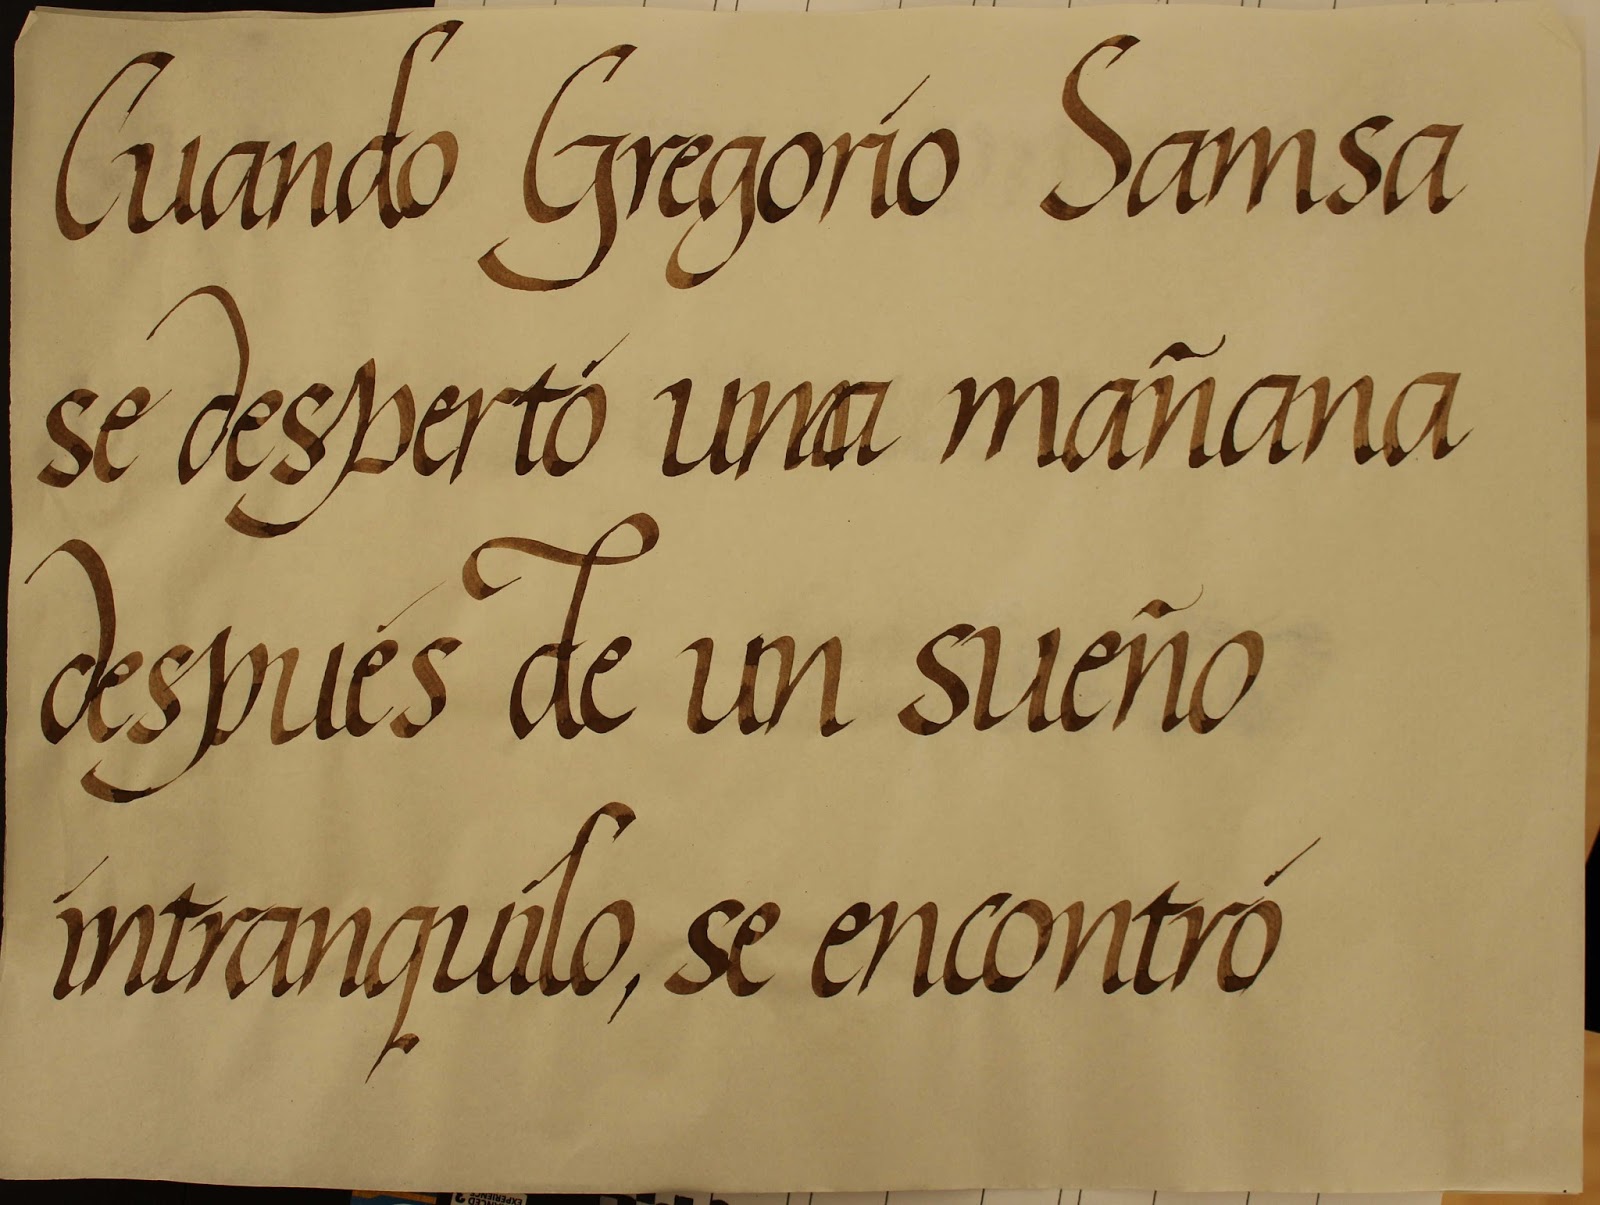 Cuando Gregorio Samsa
se despertó una mañana
después de un sueño
intranquilo, se encontró
EXPERIENCE